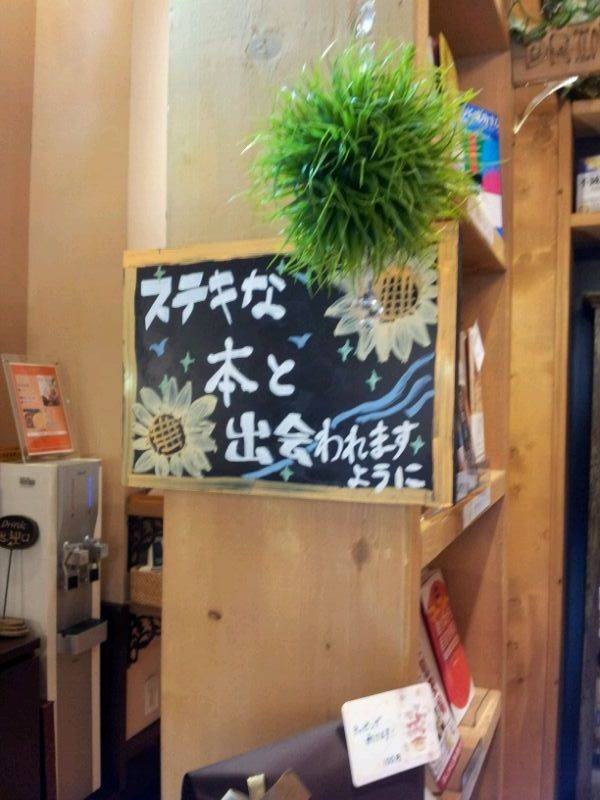 ステキな
本と
出会われます
ように
Drink